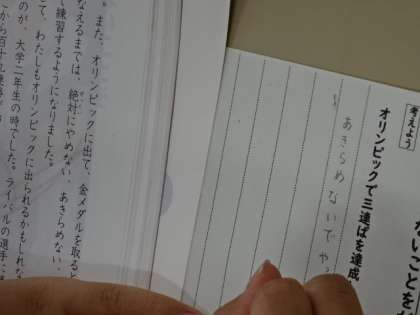 。また、オリンピックに出て、金メダルを取ると
なえるまでは、絶対にやめない、あきらめない、
て練習するようになりました。
て、わたしもオリンピックに出られるかもしれな
のが、大学二年生の時でした。ライバルの選手に
ないことを
考えよう
オリンピックで三連ぱを達成
あきらめないで